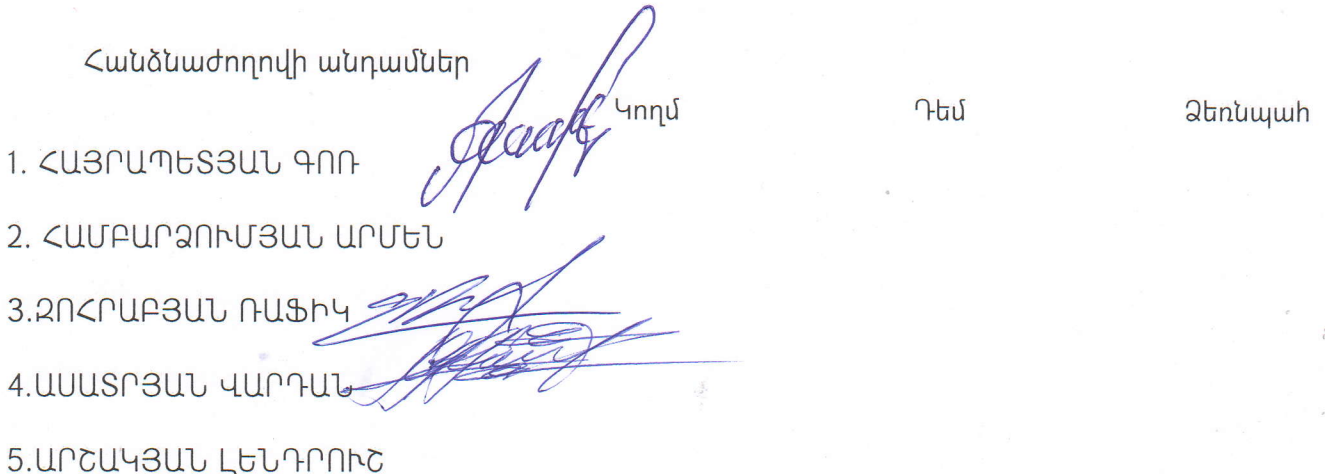 Հանձնաժողովի անդամներ
Կողմ Դեմ Ձեռնպահ
1. ՀԱՅՐԱՊԵՏՅԱՆ ԳՈՌ
2. ՀԱՄԲԱՐՁՈՒՄՅԱՆ ԱՐՄԵՆ
3.ԶՈՀՐԱԲՅԱՆ ՌԱՖԻԿ
4.ԱՍԱՏՐՅԱՆ ՎԱՐԴԱՆ
5.ԱՐՇԱԿՅԱՆ ԼԵՆԴՐՈՒՇ